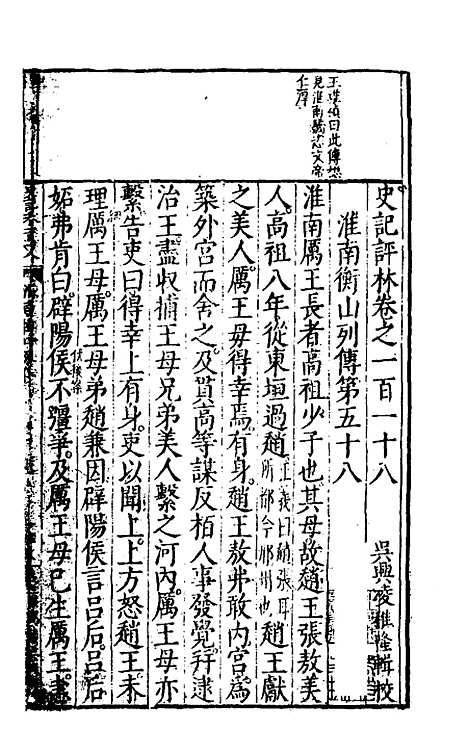 史記評林卷之一百一十八
吳興凌稚隆輯校
淮南衡山列傳第五十八
淮南厲王長者高祖少子也其母故趙王張敖美
人高祖八年從東垣過趙正義曰趙張耳所都今邢州也趙王獻
之美人厲王母得幸焉有身趙王敖弗敢內宮為
築外宮而舍之及貫高等謀反栢人事發覺幷逮
治王盡収捕王母兄弟美人繫之河內厲王母亦
繫告吏曰得幸上有身吏以聞上上方怒趙王未
理厲王母厲王母弟趙兼因辟陽侯言呂后呂后
妬弗肯白辟陽侯不彊爭及厲王母已生厲王恚
見淮南厲
文帝
仁厚